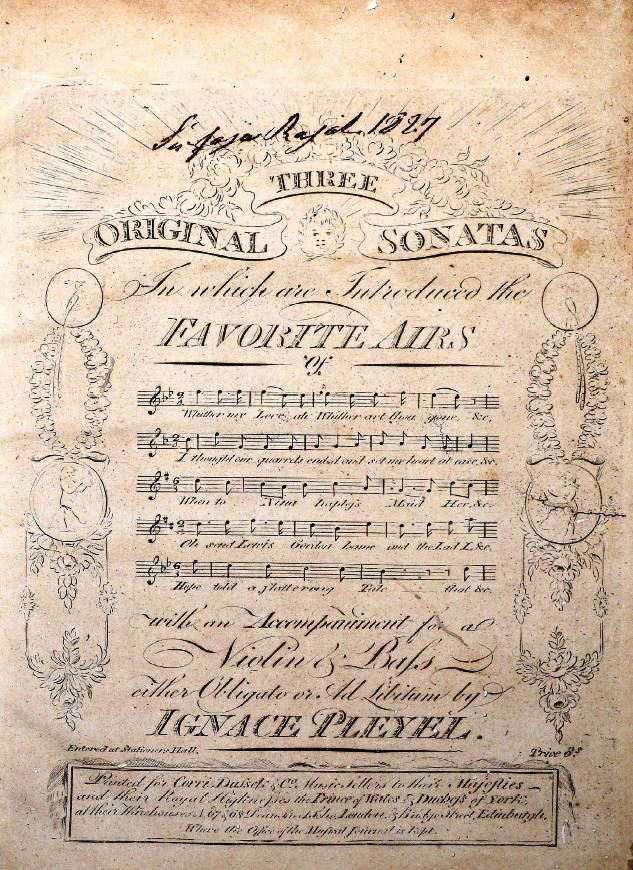 1827
THREE
ORIGINAL SONATAS
In which are Introduced the
FAVORITE AIRS
Of
Whither my Love ah Whither art thou gone, &c.
I thought our quarrels ended and set my heart at ease, &c.
When to Nina hapless Maid Her &c.
Oh send Lewis Gordon hame and the Lad I, &c.
Hope told a flattering Tale that &c.
with an Accompaniment for a
Violin & Bass
either Obligato or Ad Libitum by
IGNACE PLEYEL.
Entered at Stationers Hall. Price 8s
Printed for Corri, Dussek & Co. Music Sellers to their Majesties
and their Royal Highnesses the Prince of Wales & Dutchess of York,
at their Warehouses No. 67 & 68 Dean Street, Soho, London, & Bridge Street, Edinburgh.
Where the Office of the Musical Journal is kept.